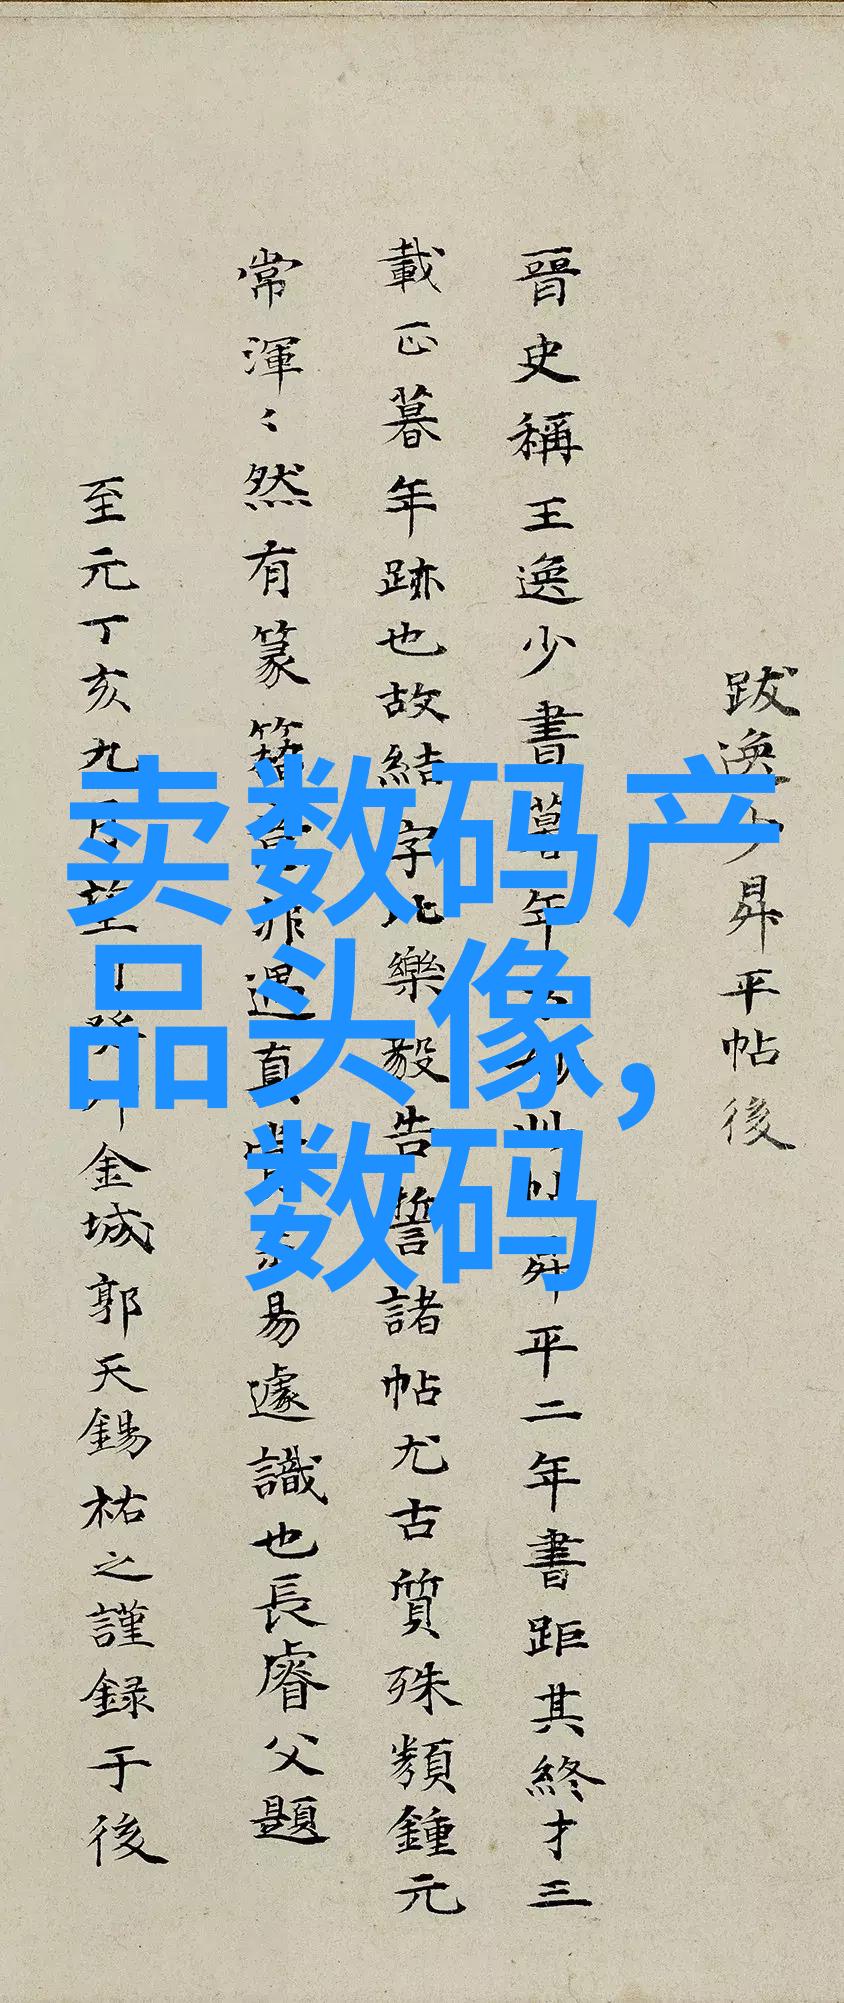 跋逸少昇平帖後
晉史稱王逸少書暮年方妙此 昇平二年書距其終才三
載正暮年跡也故結字比樂毅告誓諸帖尤古質殊類鍾元
常渾〻然有篆籀意非遇真賞未易遽識也長睿父題
至元丁亥九月望日 金城郭天錫祐之謹録于後
卖数码产
品头像,
数码